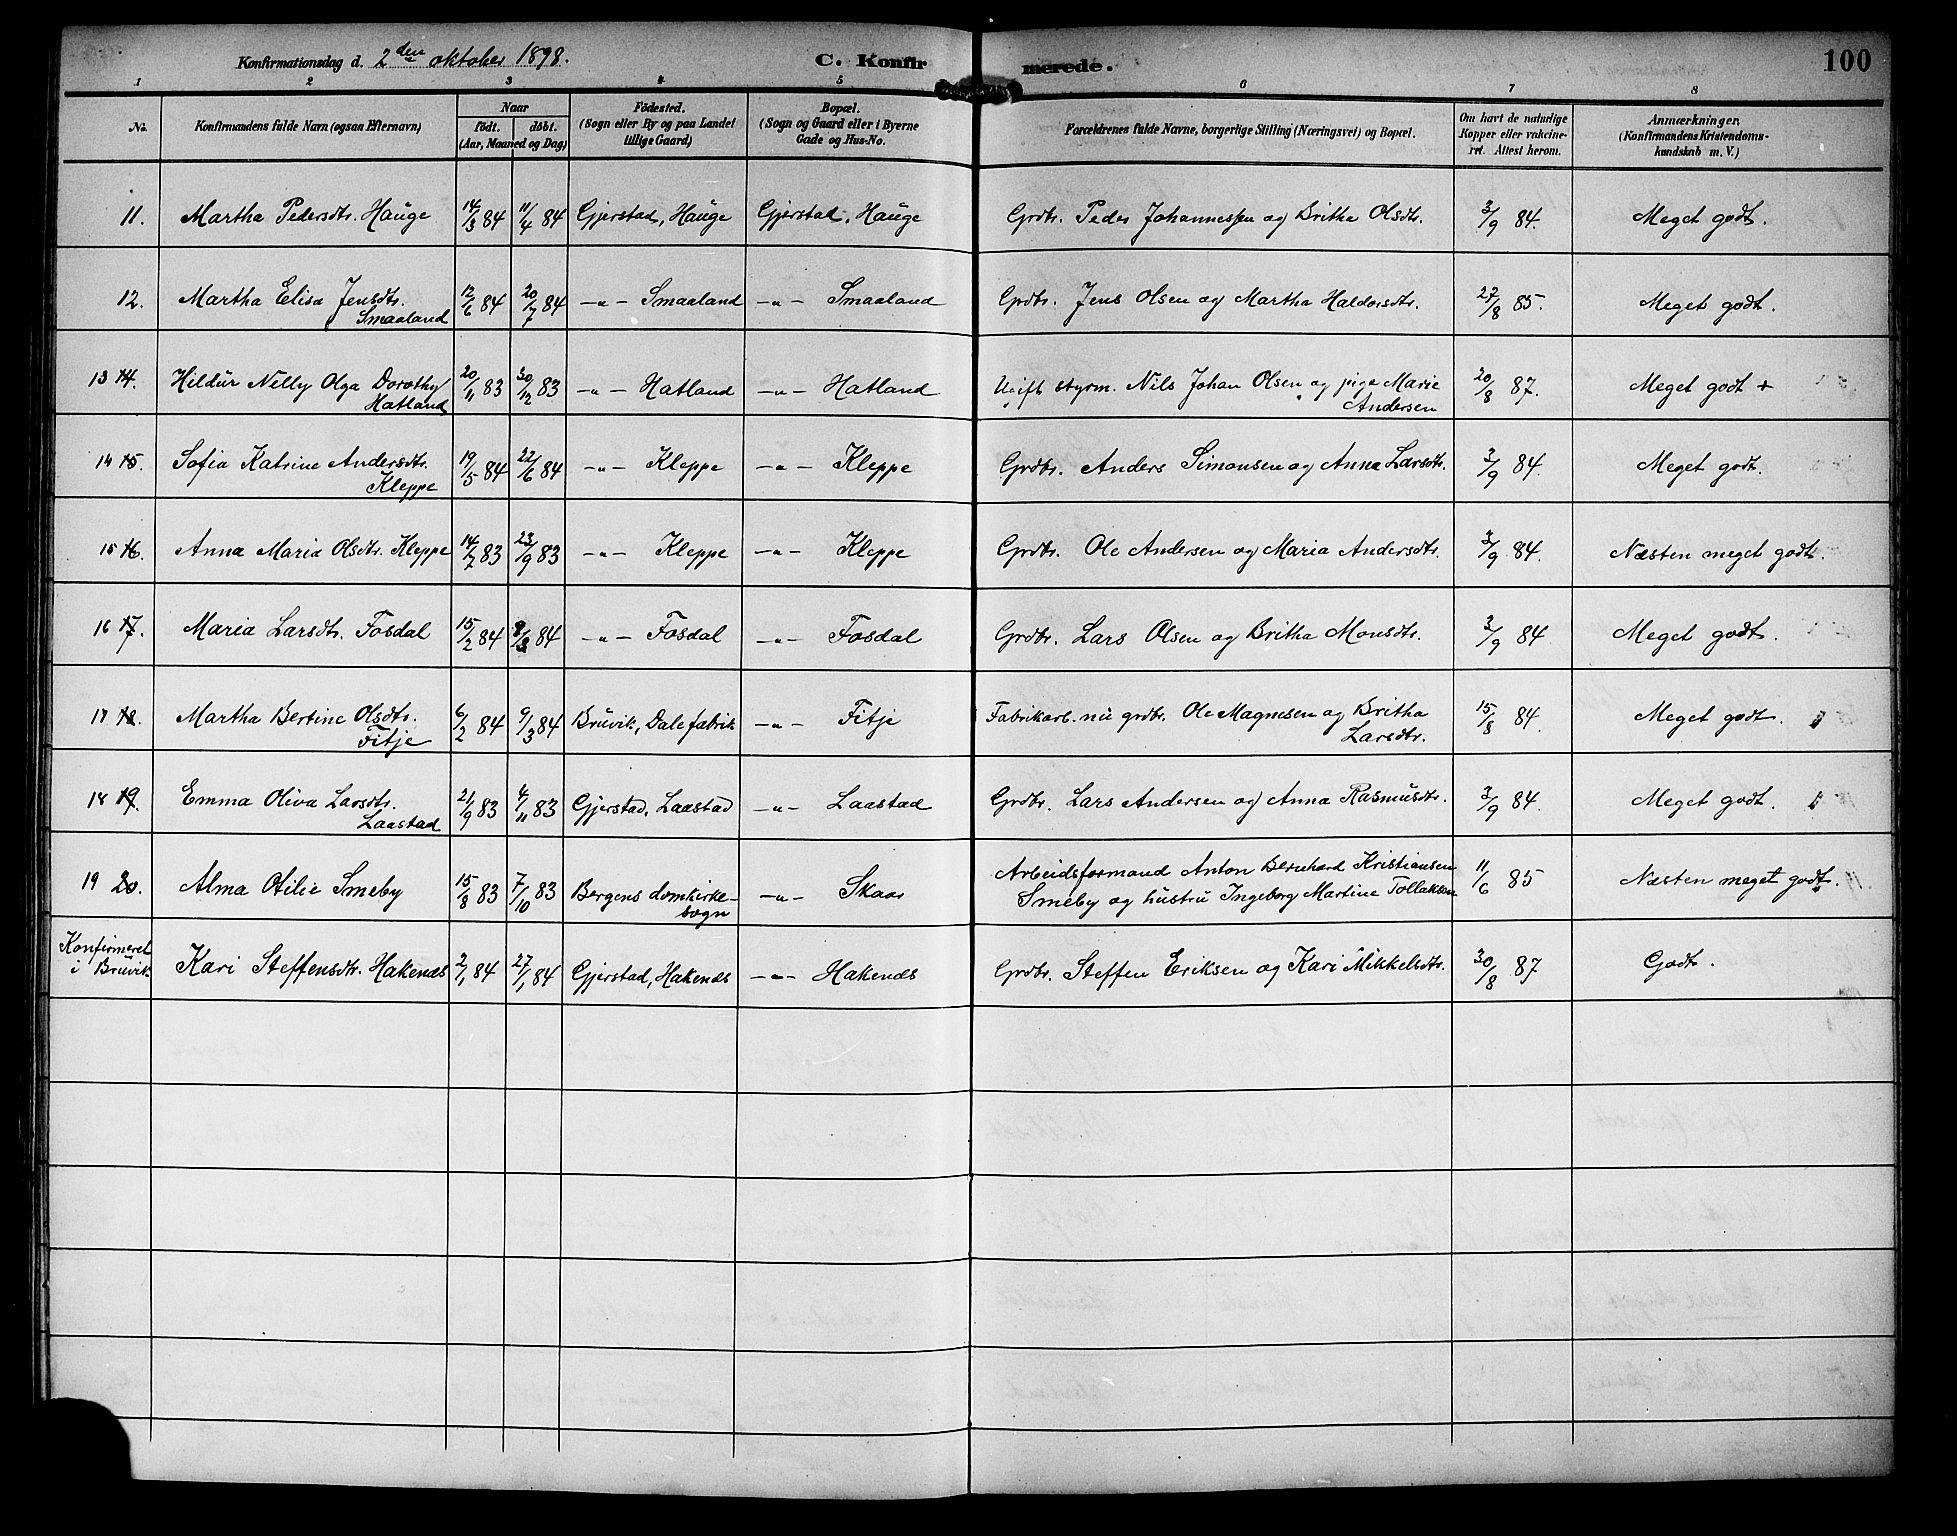 Konfirmationsdag d. 2den oktober 1898. C. Konfirmerede. 100
1 2 3 4 5 6 7 8
No. Konfirmandens fulde Navn (ogsaa Efternavn) Naar født. døbt. (Aar, Maaned og Dag) Fødested. (Sogn eller By og paa Landet tillige Gaard) Bopæl. (Sogn og Gaard eller i Byerne Gade og Hus-No. Forældrenes fulde Navne, borgerlige Stilling (Næringsvei) og Bopæl. Om havt de naturlige Kopper eller vakcineret. Attest herom. Anmærkninger, (Konfirmandens Kristendomskundskab m. V.)
11. Martha Pedersdtr. Hauge 14/3 84 11/4 84 Gjerstad, Hauge Gjerstad, Hauge Grdbr. Peder Johannessen og Britha Olsdtr. 3/9 84. Meget godt.
12. Martha Elisa Jensdtr. Smaaland 12/6 84 20/7 84 -„- Smaaland -„- Smaaland Grdbr. Jens Olsen og Martha Haldorsdtr. 27/8 85. Meget godt.
13 14. Hildur Nelly Olga Dorothy Hatland 20/11 83 30/12 83 -„- Hatland -„- Hatland Ugift styrm. Nils Johan Olsen og pige Marie Andersen 20/8 87. Meget godt +
14 15. Sofia Katrine Andersdtr. Kleppe 19/5 84 22/6 84 -„- Kleppe -„- Kleppe Grdbr. Anders Simonsen og Anna Larsdtr. 3/9 84. Meget godt.
15 16. Anna Maria Olsdtr. Kleppe 14/7 83 23/9 83 -„- Kleppe -„- Kleppe Grdbr. Ole Andersen og Maria Andersdtr. 3/9 84. Næsten meget godt.
16 17. Maria Larsdtr. Fosdal 15/2 84 /3 84 -„- Fosdal -„- Fosdal Grdbr. Lars Olsen og Britha Monsdtr. 3/9 84 Meget godt.
17 18. Martha Bertine Olsdtr. Fitje 6/2 84 9/3 84 Bruvik, Dale fabrik -„- Fitje Fabrikarb. nu grdbr. Ole Magnesen og Britha Larsdtr. 15/8 84. Meget godt.
18 19. Emma Oliva Larsdtr. Laastad 21/9 83 4/11 83 Gjerstad, Laastad -„- Laastad Grdbr. Lars Andersen og Anna Rasmusdtr. 3/9 84. Meget godt.
19 20. Alma Otilie Smeby 15/8 83 7/10 83 Bergens domkirke-sogn -„- Skaar Arbeidsformand Anton Bernhard Kristiansen Smeby og hustru Ingeborg Martine Tollaksen 11/6 85 Næsten meget godt.
Konfirmeret i Bruvik Kari Steffensdtr. Hakenæs 2/1 84 27/1 84 Gjerstad, Hakenæs -„- Hakenæs Grdbr. Steffen Eriksen og Kari Mikkelsdtr. 30/8 87 Godt.